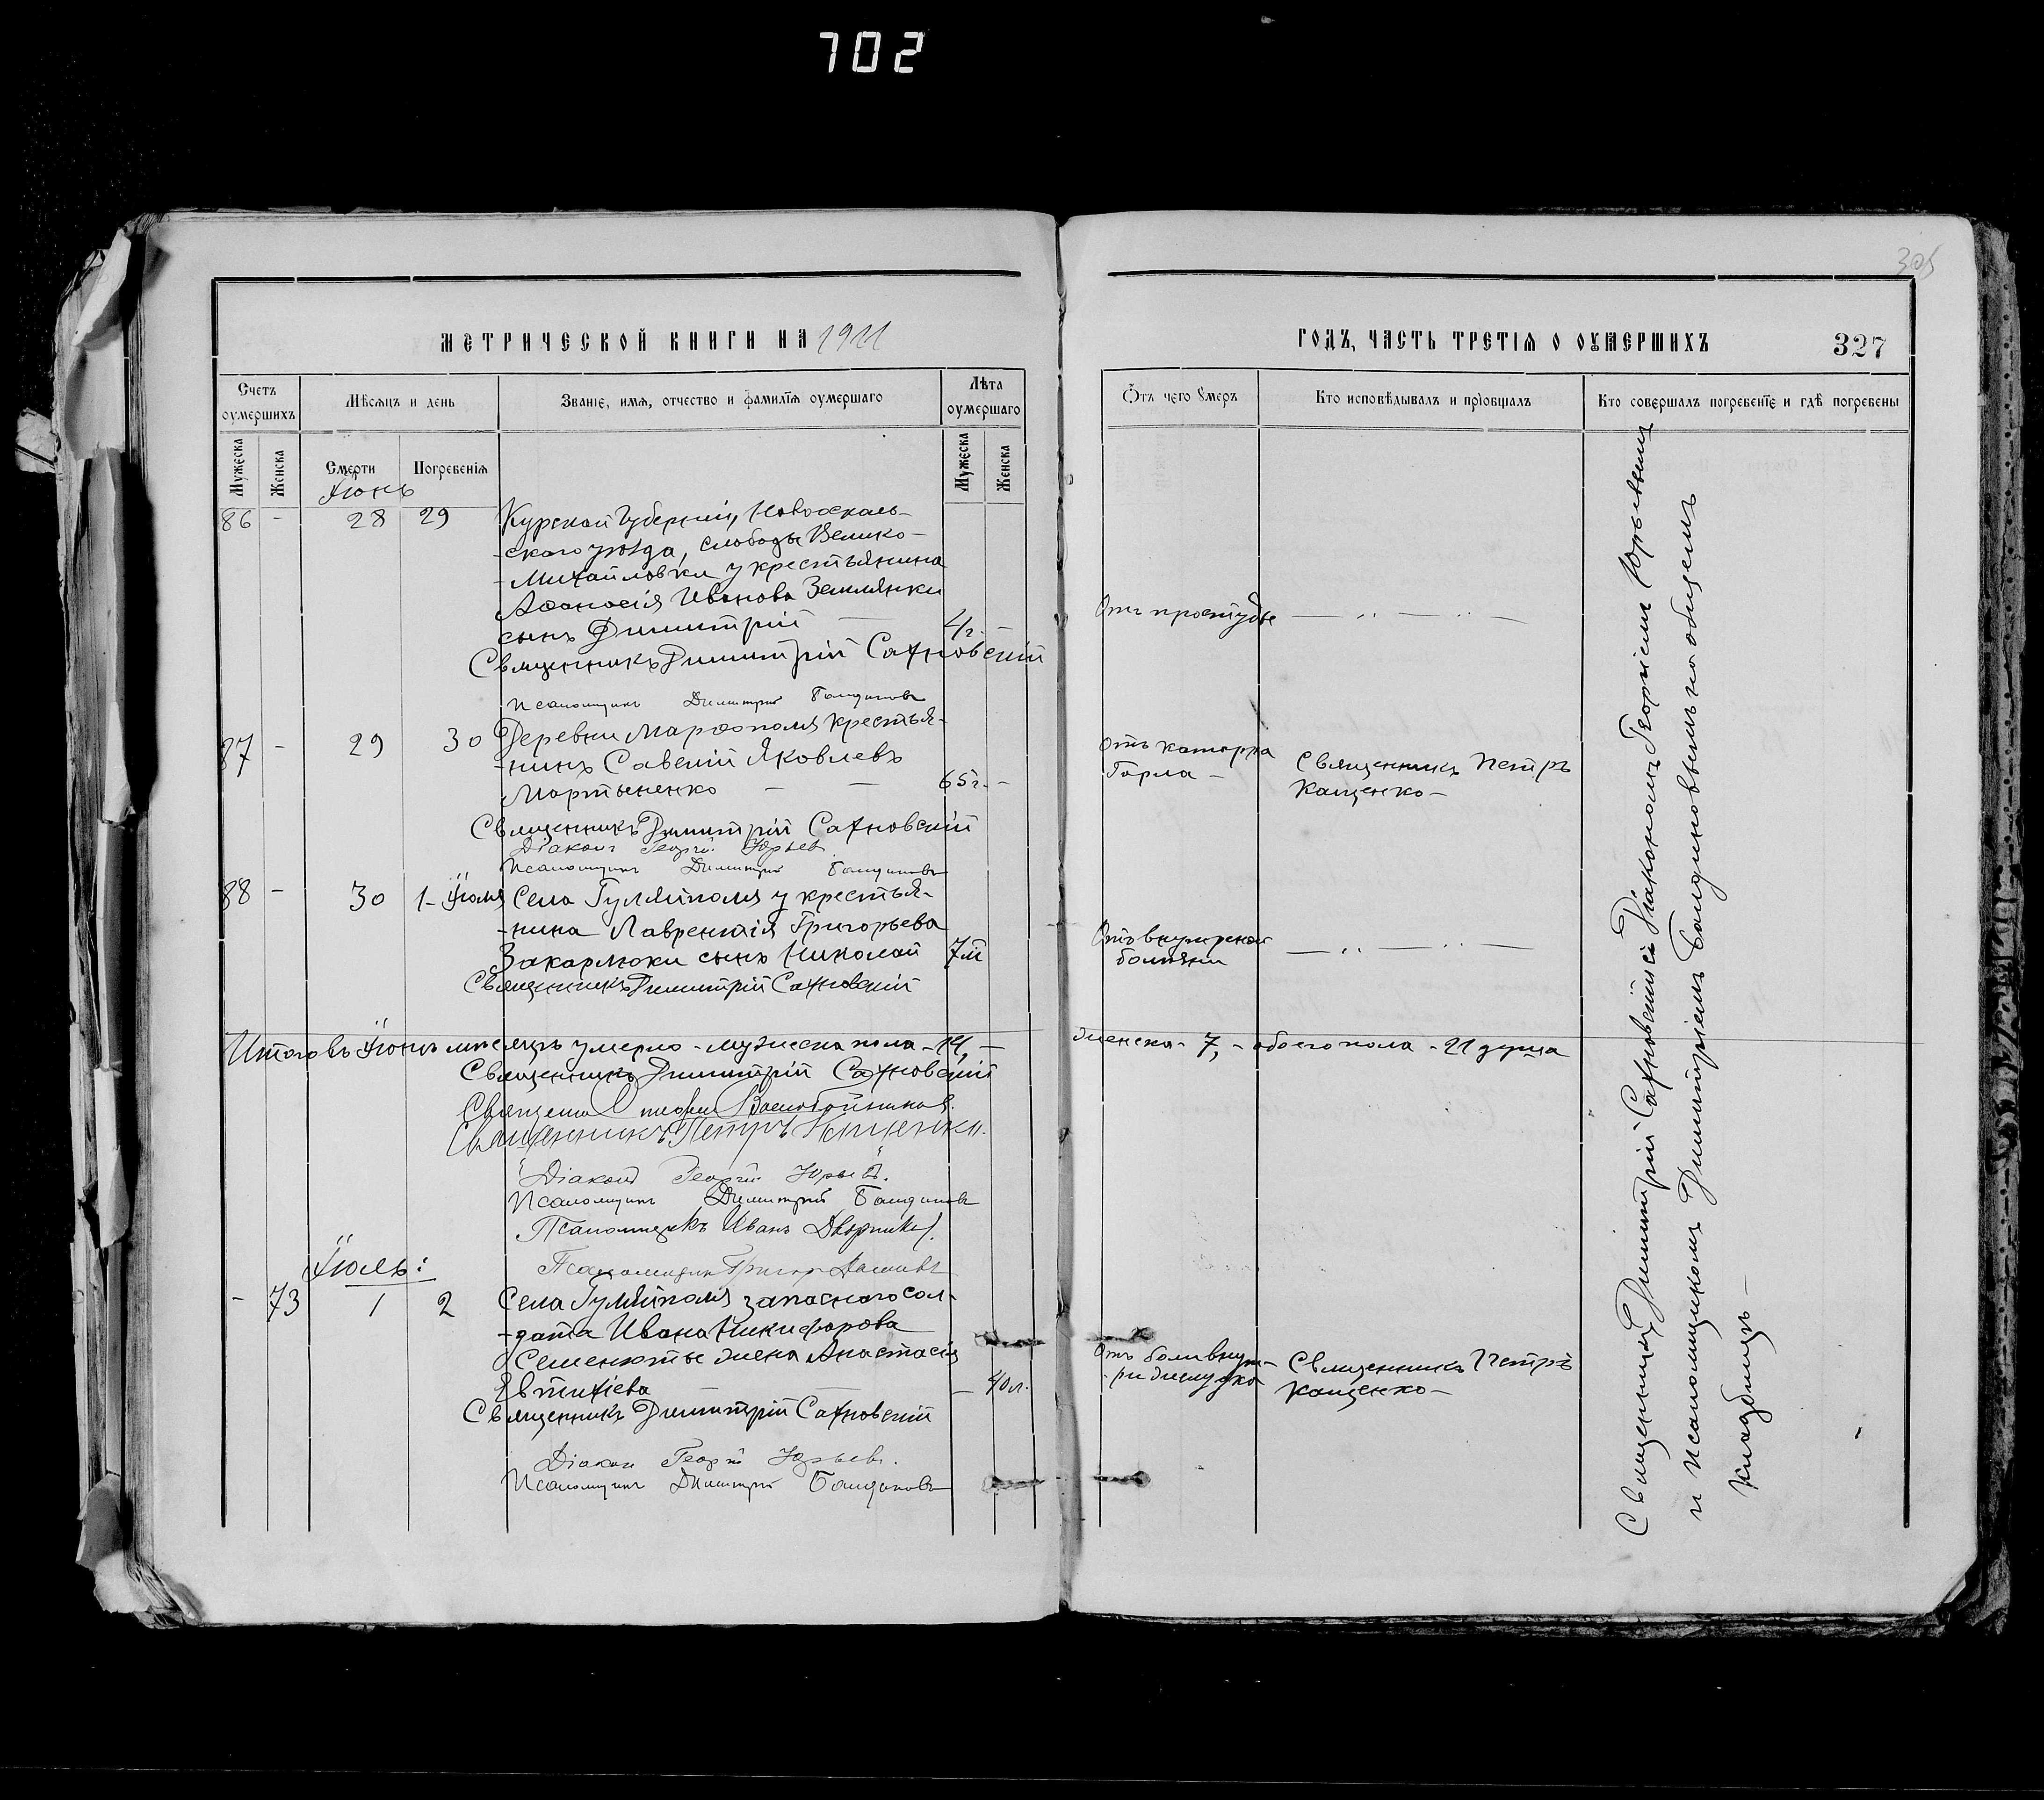 702
305
МЕТРИЧЕСКОЙ КНИГИ НА 1911
ГОДЪ, ЧАСТЬ ТРЕТІЯ О ОУМЕРШИХЪ
327
Счетъ оумершихъ
Мѣсяцъ и день
Званіе, имя, отчество и фамилія оумершаго
Лѣта оумершаго
Отъ чего умеръ
Кто исповѣдывалъ и пріобщалъ
Кто совершалъ погребеніе и гдѣ погребены
Мужеска
Женска
Смерти
Погребенія
Мужеска
Женска
Іюнь
86 - 28 29 Курской Губерніи, Новоосколь-
-скаго уѣзда, слободы Велико-
-Михайловки у крестьянина
Аѳанасія Иванова Землянки
сынъ Димитрій — 4 г. -
Отъ простуды
Священникъ Димитрій Сахновскій
Псаломщикъ Димитрій
87 - 29 30 Деревни Марфополя крестья-
-нинъ Савелій Яковлевъ
Мартыненко - - 65 г. -
Отъ катарра
Горла -
Священникъ Петръ
Кащенко -
Священникъ Димитрій Сахновскій
Діаконъ Георгій Юрьевъ
Псаломщикъ Димитрій
88 - 30 1 - Іюля Села Гуляйполя у крестья-
-нина Лаврентія Григорьева
Закарлюки сынъ Николай 7 м
Отъ внутреней
болѣзни
Священникъ Димитрій Сахновскій
Итого въ Іюнѣ мѣсяцѣ умерло - мужеска пола - 14, -
женска - 7, - обоего пола - 21 душа
Священникъ Димитрій Сахновскій
Священникъ Петръ Кащенко.
Діаконъ Георгій Юрьевъ.
Псаломщикъ Димитрій
Псаломщикъ Иванъ
Псаломщикъ
Іюль:
- 73 1 2 Села Гуляйполя запаснаго сол-
-дата Ивана Никифорова
Семенюты жена Анастасія
Евтихіева - - - 40 л.
Отъ боли внут-
-ри желудка
Священникъ Петръ
Кащенко -
Священникъ Димитрій Сахновскій
Діаконъ Георгій Юрьевъ.
Псаломщикъ Димитрій
Священникъ Димитрій Сахновскій съ Діакономъ Георгіемъ Юрьевымъ
и псаломщикомъ Димитріемъ на общемъ
кладбищѣ -